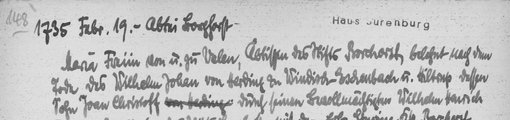 148
1735 Febr. 19. - Abtei Borghorst -
Haus Surenburg
Maria Freiin von u. zu Velen, Äbtissin des Stifts Borchorst, belehnt nach dem
Tode des Wilhelm Johan von Herding zu Windisch-Eschenbach u. Hiltrup dessen
Sohn Joan Christoff von Herding durch seinen Bevollmächtigten Wilhelm Henrich
mit der